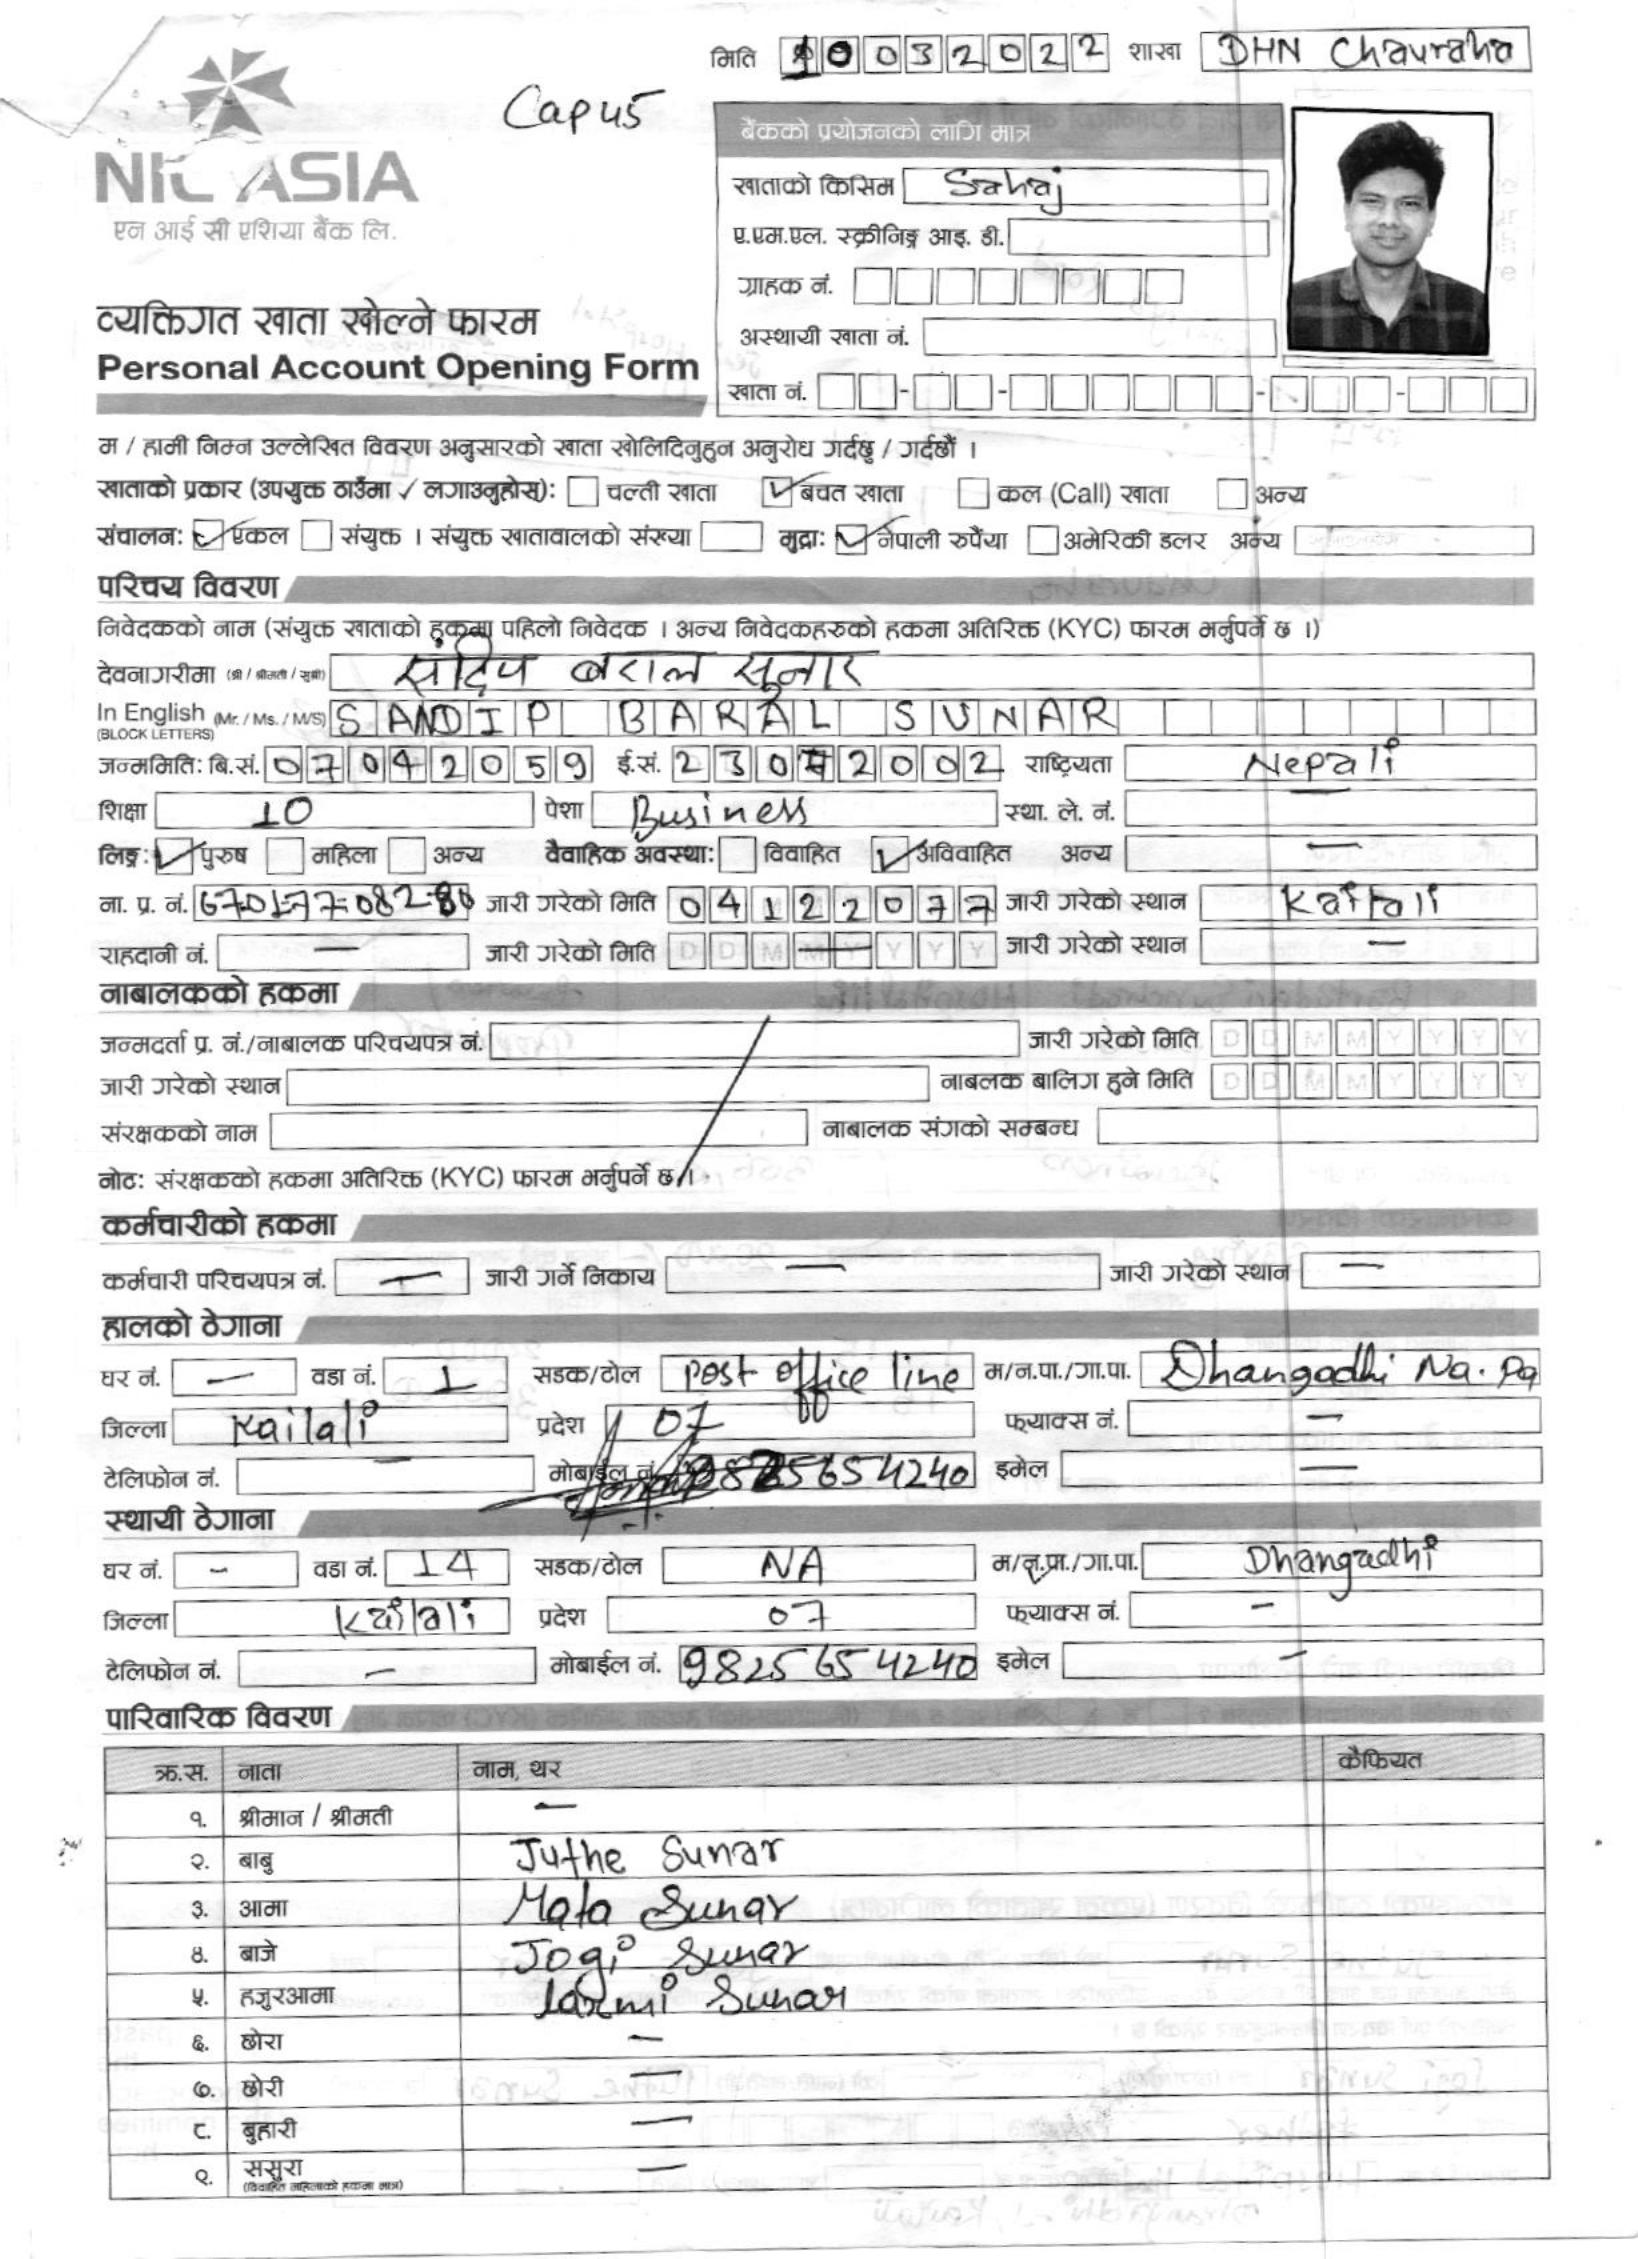 मिति 10032022 शाखा DHN Chauraha
Cap 45
NIC ASIA
एन आई सी एशिया बैंक लि.
बैंकको प्रयोजनको लागि मात्र
खाताको किसिम Sahaj
ए.एम.एल. स्क्रीनिङ्ग आइ. डी.
ग्राहक नं.
अस्थायी खाता नं.
खाता नं.
व्यक्तिगत खाता खोल्ने फारम
Personal Account Opening Form
म / हामी निम्न उल्लेखित विवरण अनुसारको खाता खोलिदिनुहुन अनुरोध गर्दछु / गर्दछौं ।
खाताको प्रकार (उपयुक्त ठाउँमा ✓ लगाउनुहोस्): चल्ती खाता ✓ बचत खाता कल (Call) खाता अन्य
संचालन: ✓ एकल संयुक्त । संयुक्त खातावालको संख्या मुद्रा: ✓ नेपाली रुपैंया अमेरिकी डलर अन्य
परिचय विवरण
निवेदकको नाम (संयुक्त खाताको हकमा पहिलो निवेदक । अन्य निवेदकहरुको हकमा अतिरिक्त (KYC) फारम भर्नुपर्ने छ ।)
देवनागरीमा (श्री / श्रीमती / सुश्री) संदिप बराल सुनार
In English (Mr. / Ms. / M/S) SANDIP BARAL SUNAR
(BLOCK LETTERS)
जन्ममिति: बि.सं. 07042059 ई.सं. 23072002 राष्ट्रियता Nepali
शिक्षा 10 पेशा Business स्था. ले. नं. —
लिङ्ग: ✓ पुरुष महिला अन्य वैवाहिक अवस्था: विवाहित ✓ अविवाहित अन्य —
ना. प्र. नं. जारी गरेको मिति 04122077 जारी गरेको स्थान Kailali
राहदानी नं. — जारी गरेको मिति D D M M Y Y Y Y जारी गरेको स्थान —
नाबालकको हकमा
जन्मदर्ता प्र. नं./नाबालक परिचयपत्र नं. जारी गरेको मिति D D M M Y Y Y Y
जारी गरेको स्थान नाबलक बालिग हुने मिति D D M M Y Y Y Y
संरक्षकको नाम नाबालक संगको सम्बन्ध
नोट: संरक्षकको हकमा अतिरिक्त (KYC) फारम भर्नुपर्ने छ ।
कर्मचारीको हकमा
कर्मचारी परिचयपत्र नं. — जारी गर्ने निकाय — जारी गरेको स्थान —
हालको ठेगाना
घर नं. — वडा नं. 1 सडक/टोल post office line म/न.पा./गा.पा. Dhangadhi Na. Pa
जिल्ला Kailali प्रदेश 07 फ्याक्स नं. —
टेलिफोन नं. — मोबाईल नं. 9825654240 इमेल —
स्थायी ठेगाना
घर नं. - वडा नं. 14 सडक/टोल NA म/न.पा./गा.पा. Dhangadhi
जिल्ला Kailali प्रदेश 07 फ्याक्स नं. —
टेलिफोन नं. — मोबाईल नं. 9825654240 इमेल —
पारिवारिक विवरण
क्र.स. नाता नाम, थर कैफियत
१. श्रीमान / श्रीमती —
२. बाबु Juthe Sunar
३. आमा Mata Sunar
४. बाजे Jogi Sunar
५. हजुरआमा Laxmi Sunar
६. छोरा —
७. छोरी —
८. बुहारी —
९. ससुरा —
(विवाहित महिलाको हकमा मात्र)